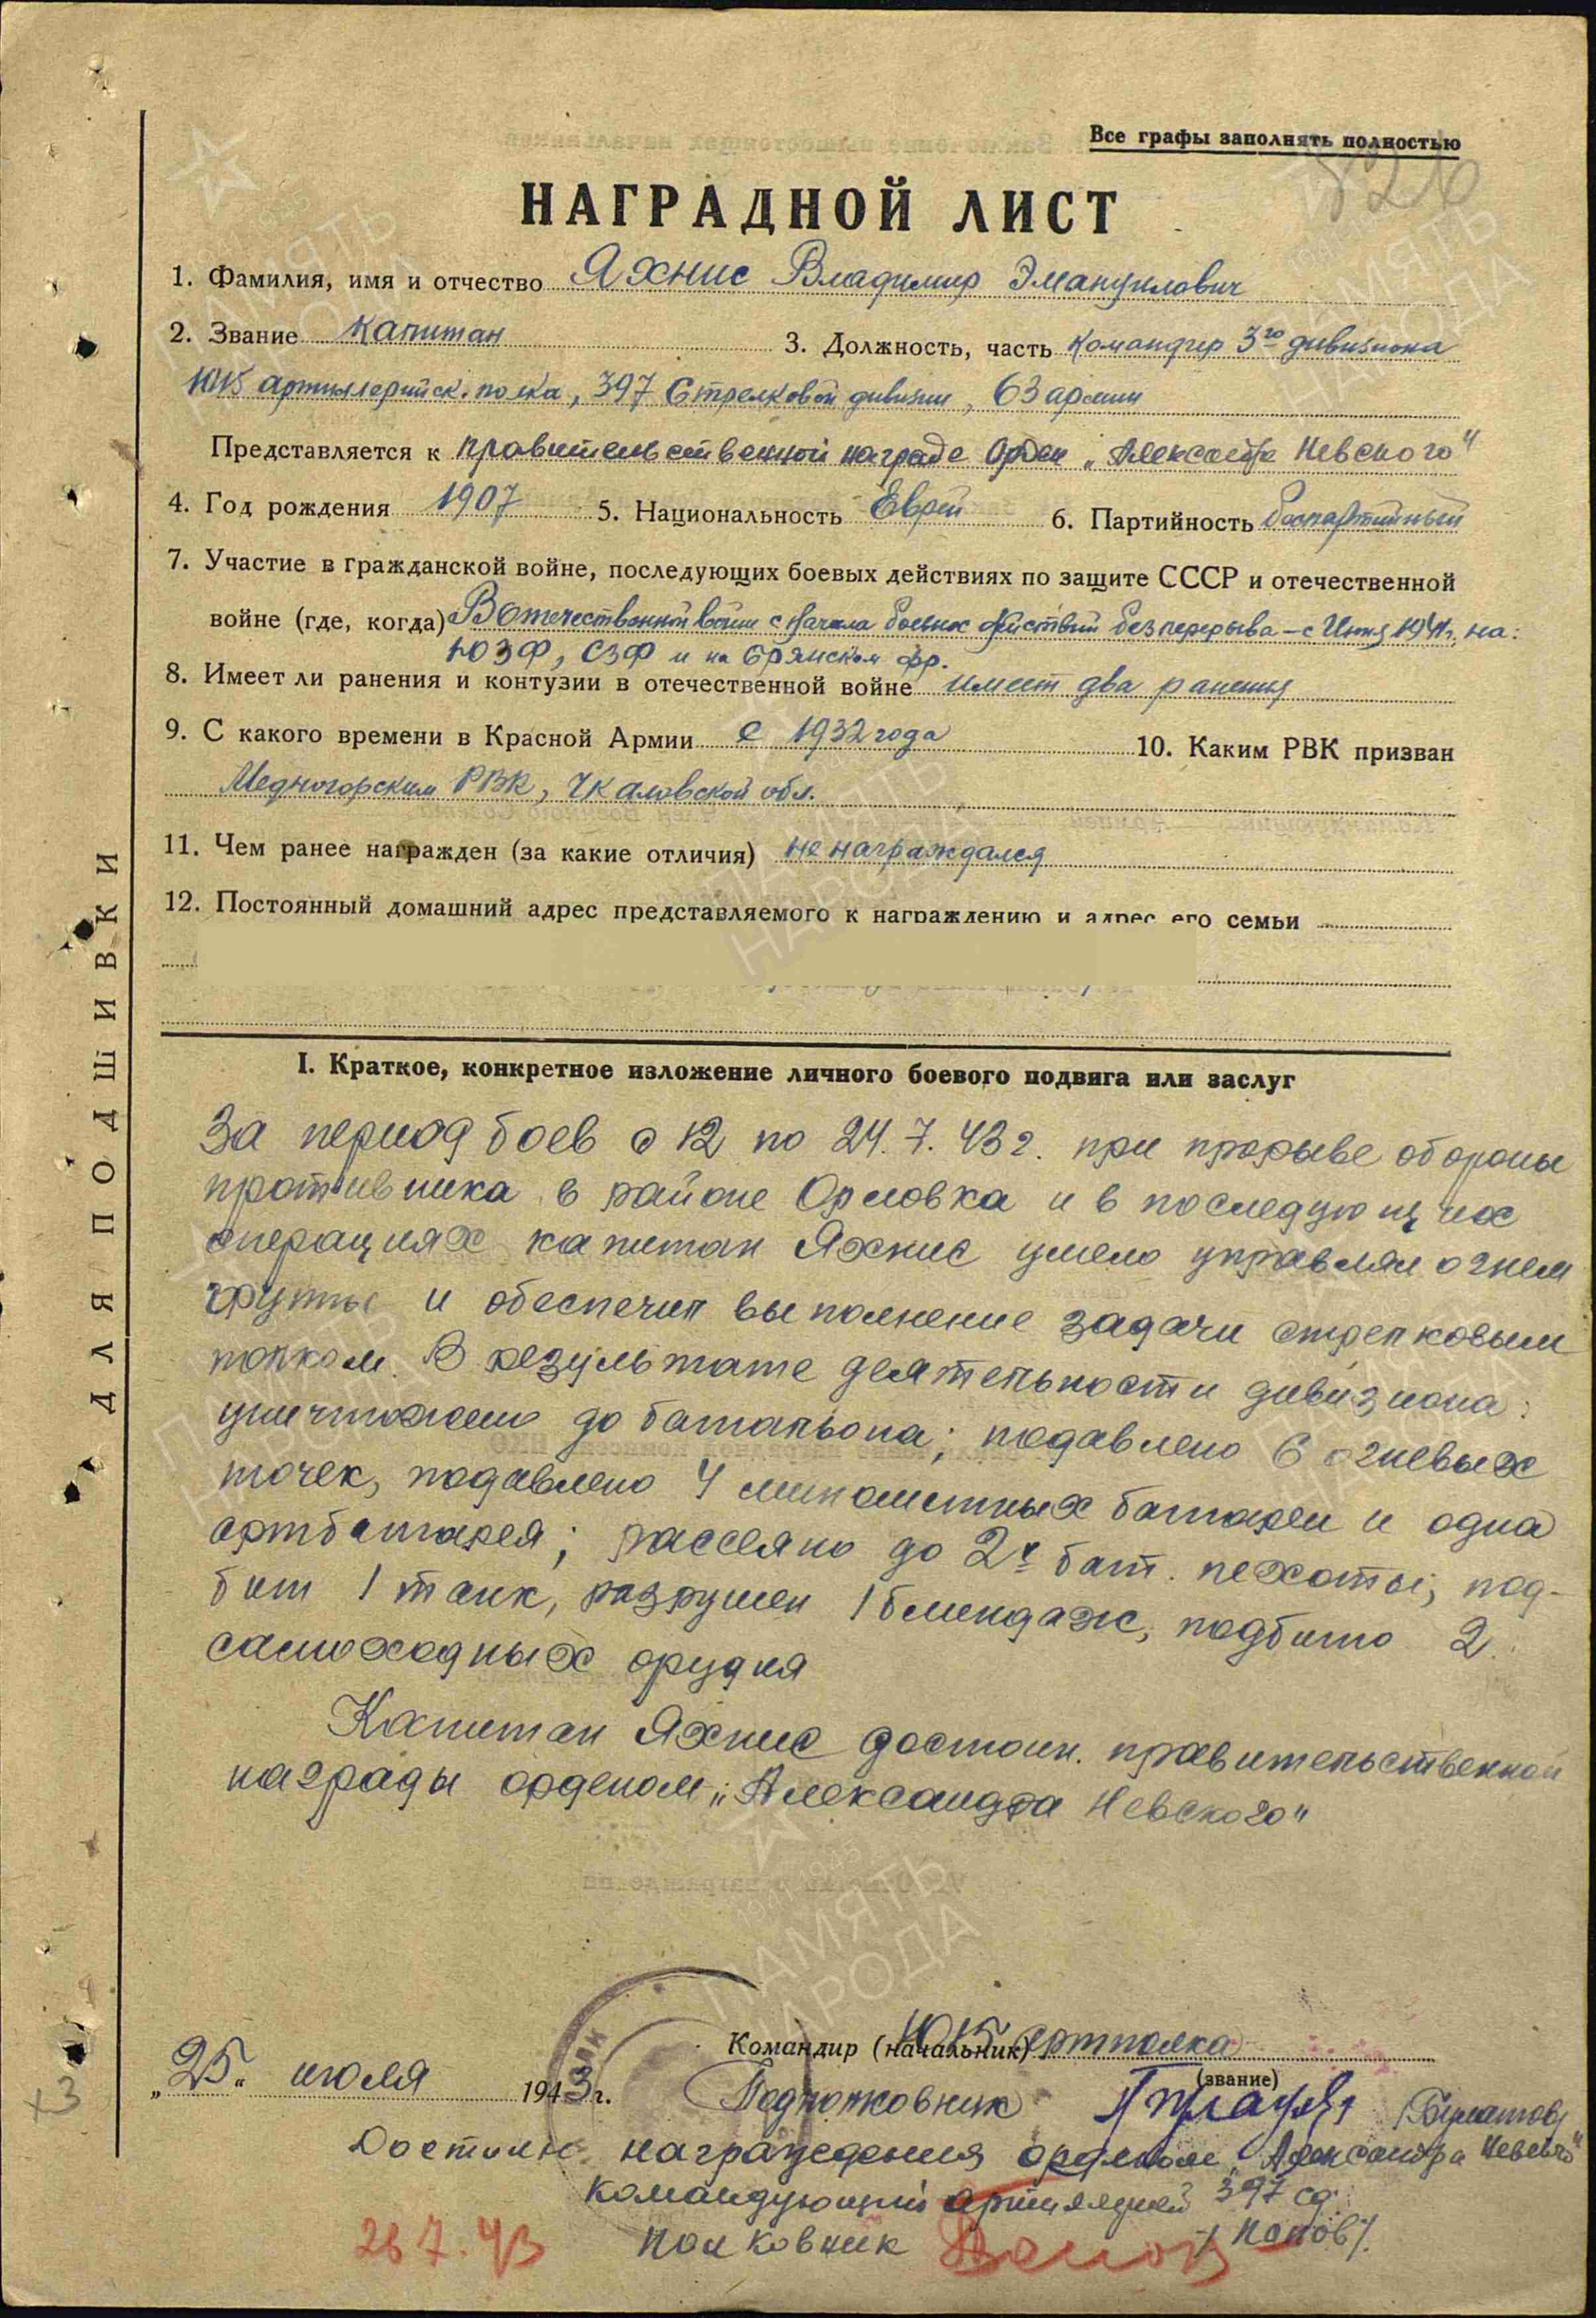 Все графы заполнять полностью
НАГРАДНОЙ ЛИСТ
1. Фамилия, имя и отчество Яхнис Владимир Эмануилович
2. Звание капитан 3. Должность, часть командир 3го дивизиона
1015 артиллерийск. полка, 397 Стрелковой дивизии, 63 армии
Представляется к правительственной награде Орден „Александра Невского"
4. Год рождения 1907 5. Национальность Еврей 6. Партийность беспартийный
7. Участие в гражданской войне, последующих боевых действиях по защите СССР и отечественной
войне (где, когда) В Отечественной войне с начала боевых действий без перерыва – с Июня 1941 г. на:
ЮЗФ, СЗФ и на Брянском фр.
8. Имеет ли ранения и контузии в отечественной войне имеет два ранения
9. С какого времени в Красной Армии с 1932 года 10. Каким РВК призван
Медногорским РВК, Чкаловской обл.
11. Чем ранее награжден (за какие отличия) не награждался
12. Постоянный домашний адрес представляемого к награждению и адрес его семьи
ДЛЯ ПОДШИВКИ
I. Краткое, конкретное изложение личного боевого подвига или заслуг
За период боев с 12 по 24.7.43 г. при прорыве обороны
противника в районе Орловка и в последующих
операциях капитан Яхнис умело управлял огнем
группы и обеспечил выполнение задачи стрелковым
полком. В результате деятельности дивизиона:
уничтожено до батальона; подавлено 6 огневых
точек, подавлено 4 минометных батареи и одна
артбатарея; рассеяно до 2х бат. пехоты; под-
бит 1 танк, разрушен 1 блиндаж, подбито 2
самоходных орудия
Капитан Яхнис достоин правительственной
награды орденом „Александра Невского"
Командир (начальник) 1015 артполка
(звание)
„25" июля 1943 г. Подполковник
Достоин награждения орденом „Александра Невского"
Командующий артиллерией 397 сд
Полковник /Попов/
26 7. 43
ПАМЯТЬ
НАРОДА